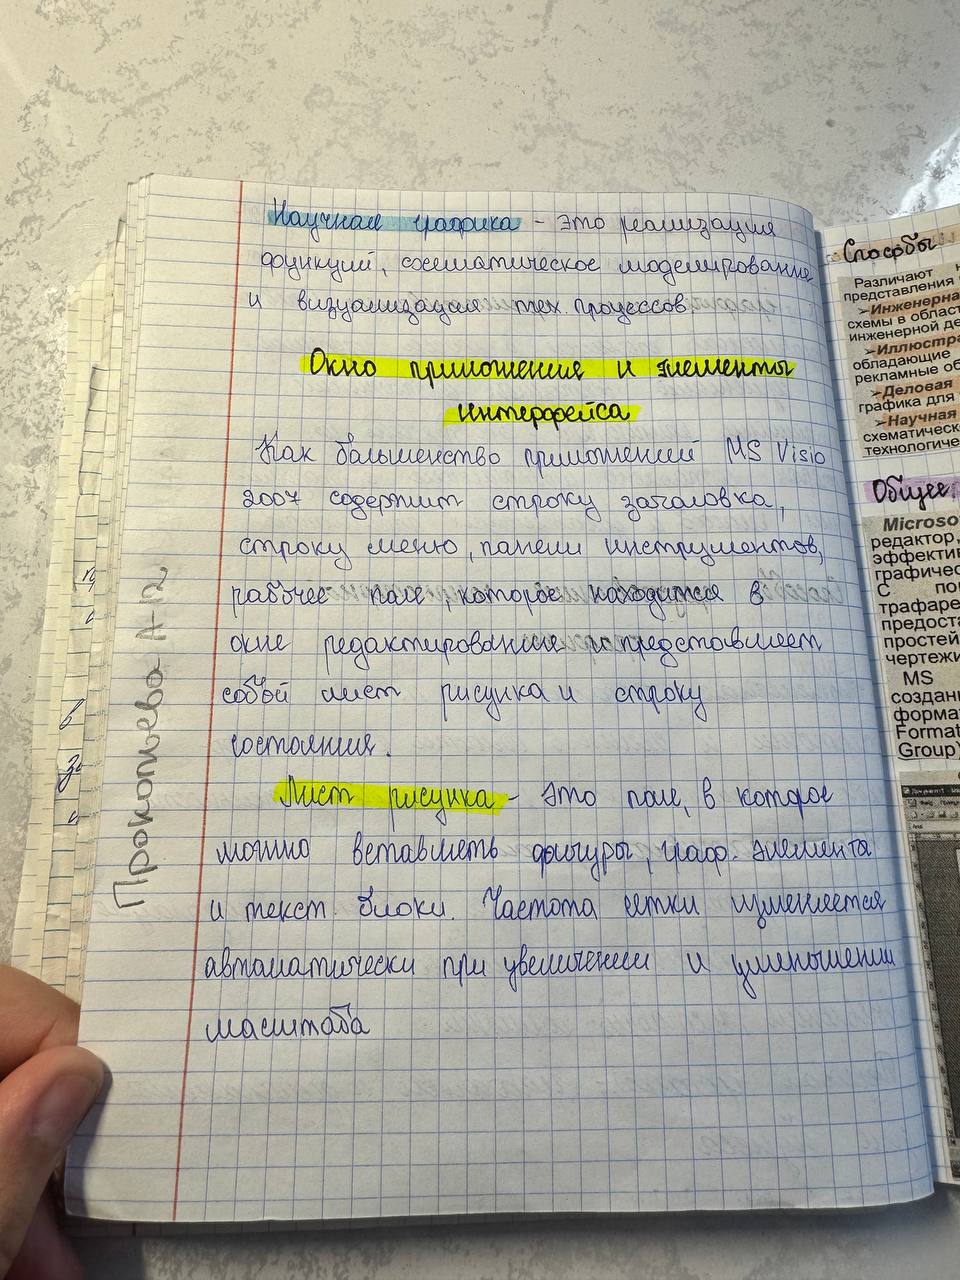 Научная графика - это реализация
функций, схематическое моделирование
и визуализация тех. процессов.
Окно приложения и элементы
интерфейса
Как большенство приложений MS Visio
2007 содержит строку заголовка,
строку меню, панели инструментов,
рабочее поле, которое находится в
окне редактирования и представляет
собой лист рисунка и строку
состояния.
Лист рисунка - это поле, в которое
можно вставлять фигуры, граф. элемента
и текст. блоки. Частота сетки изменяется
автоматически при увеличении и уменьшении
масштаба
Прокопьева А-12
Способы
Различают
представления
➢Инженерна
схемы в област
инженерной де
➢Иллюстра
обладающие
рекламные об
➢Деловая
графика для
➢Научная
схематическ
технологиче
Общее
Microso
редактор,
эффектив
графичес
С по
трафаре
предоста
простей
чертежи
MS
создан
форма
Format
Group)